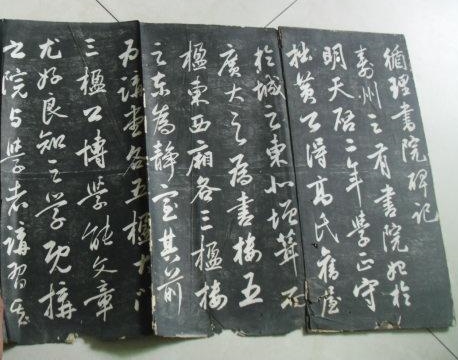 循理書院碑記
壽州之有書院始於
明天啓二年學正守
拙黃公得高氏舊屋
於城之東北增葺而
廣大之為書樓五
楹東西廂各三楹樓
之東為靜室其前
為講堂各五楹大門
三楹公博學能文章
尤好良知之學既構
之院與學者講習